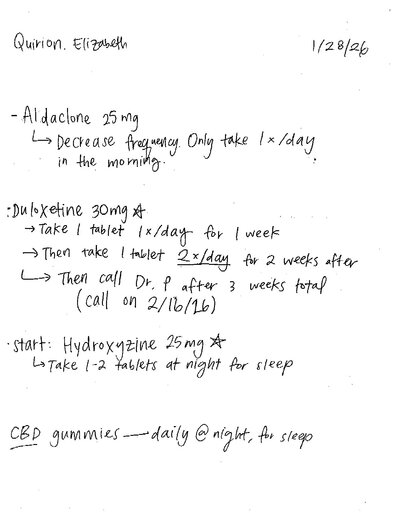 Quirion, Elizabeth 1/28/26
- Aldaclone 25 mg
↳ Decrease frequency. Only take 1x/day
in the morning.
· Duloxetine 30mg ☆
→ Take 1 tablet 1x/day for 1 week
→ Then take 1 tablet 2x/day for 2 weeks after
↳ Then call Dr. P after 3 weeks total
(call on 2/16/16)
· start: Hydroxyzine 25mg ☆
↳ Take 1-2 tablets at night for sleep
CBD gummies — daily @ night, for sleep